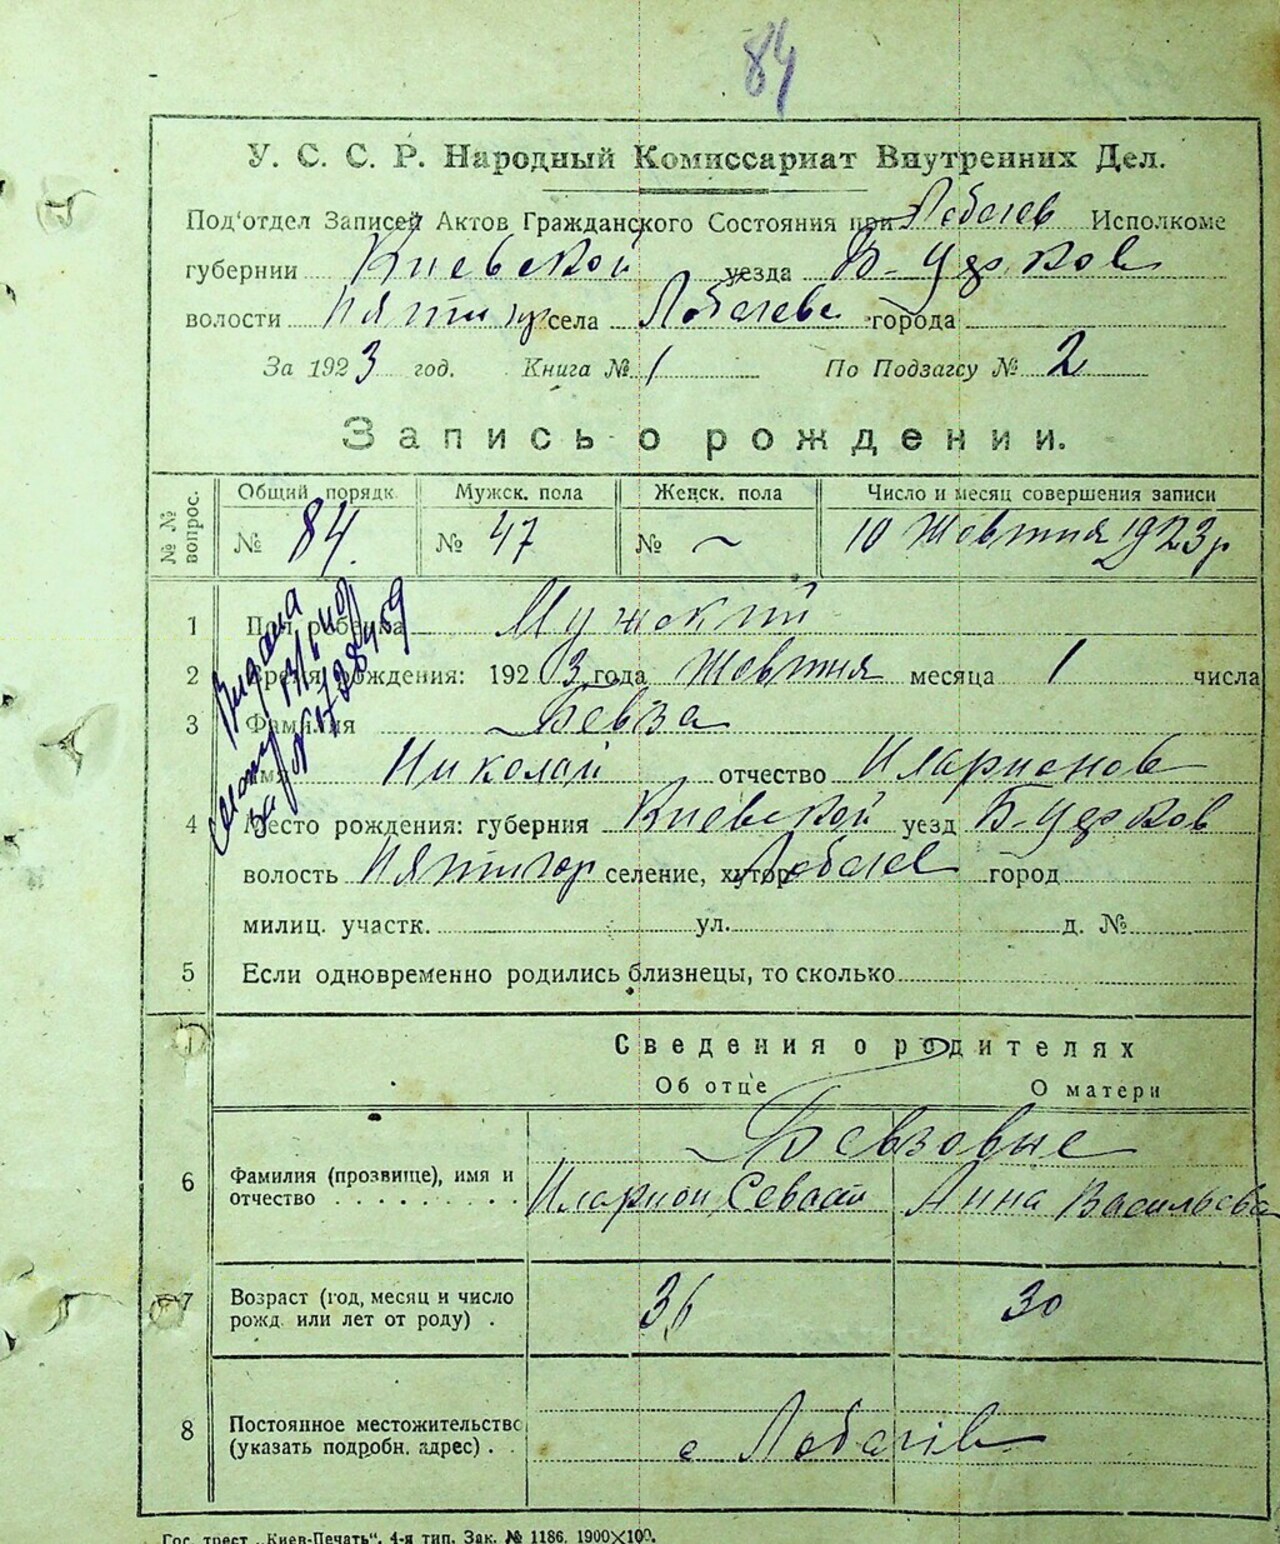 84
У. С. С. Р. Народный Комиссариат Внутренних Дел.
Под'отдел Записей Актов Гражданского Состояния при Лобачев Исполкоме
губернии Киевской уезда Б-Церков
волости Пятигор села Лобачева города
За 1923 год. Книга № 1 По Подзагсу № 2
Запись о рождении.
№ № вопрос.
Общий порядк. Мужск. пола Женск. пола Число и месяц совершения записи
№ 84. № 47 № ~ 10 Жовтня 1923 р
1 Пол ребенка Мужский
2 Время рождения: 1923 года Жовтня месяца 1 числа
3 Фамилия Бевза
Имя Николай отчество Иларионов
4 Место рождения: губерния Киевской уезд Б-Церков
волость Пятигор селение, хутор Лобачев город
милиц. участк. ул. д. №
5 Если одновременно родились близнецы, то сколько
Сведения о родителях
Об отце О матери
Бевзовые
6 Фамилия (прозвище), имя и отчество Иларион Севаст Анна Васильева
7 Возраст (год, месяц и число рожд. или лет от роду) . 36 30
8 Постоянное местожительство (указать подробн. адрес) . . с Лобачів
Видана
за №
Гос. трест „Киев-Печать", 4-я тип. Зак. № 1186. 1900×100.